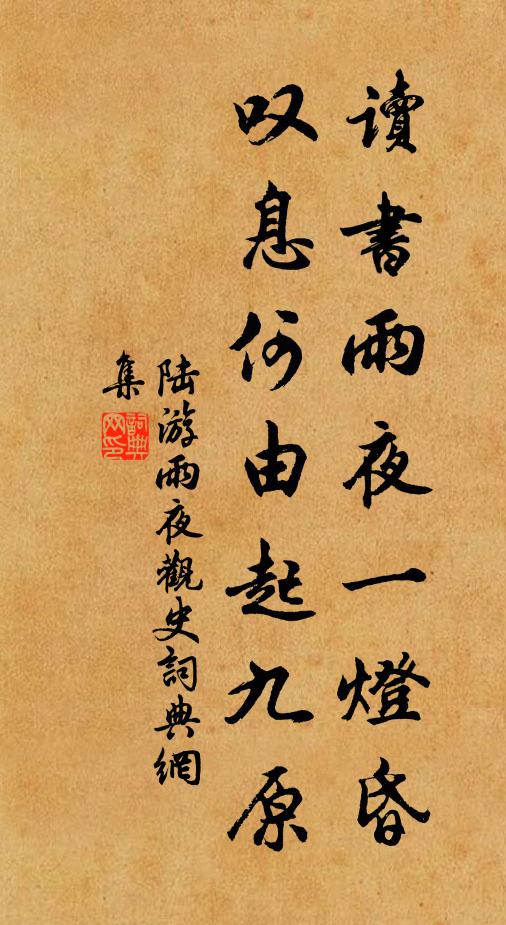 讀書雨夜一燈昏
叹息何由起九原
陆游雨夜觀史詞典網
集
詞典
网印